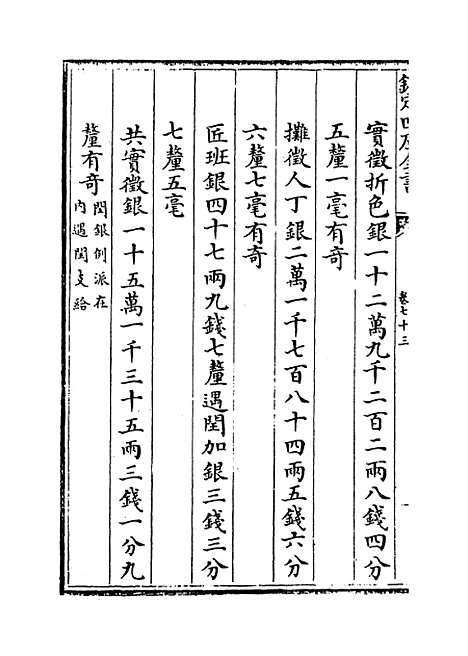 欽定四庫全書
卷七十三
實徵折色銀一十二萬九千二百二兩八錢四分
五釐一毫有奇
攤徵人丁銀二萬一千七百八十四兩五錢六分
六釐七毫有奇
匠班銀四十七兩九錢七釐遇閏加銀三錢三分
七釐五毫
共實徵銀一十五萬一千三十五兩三錢一分九
釐有奇閏銀例派在
內遇閏支給